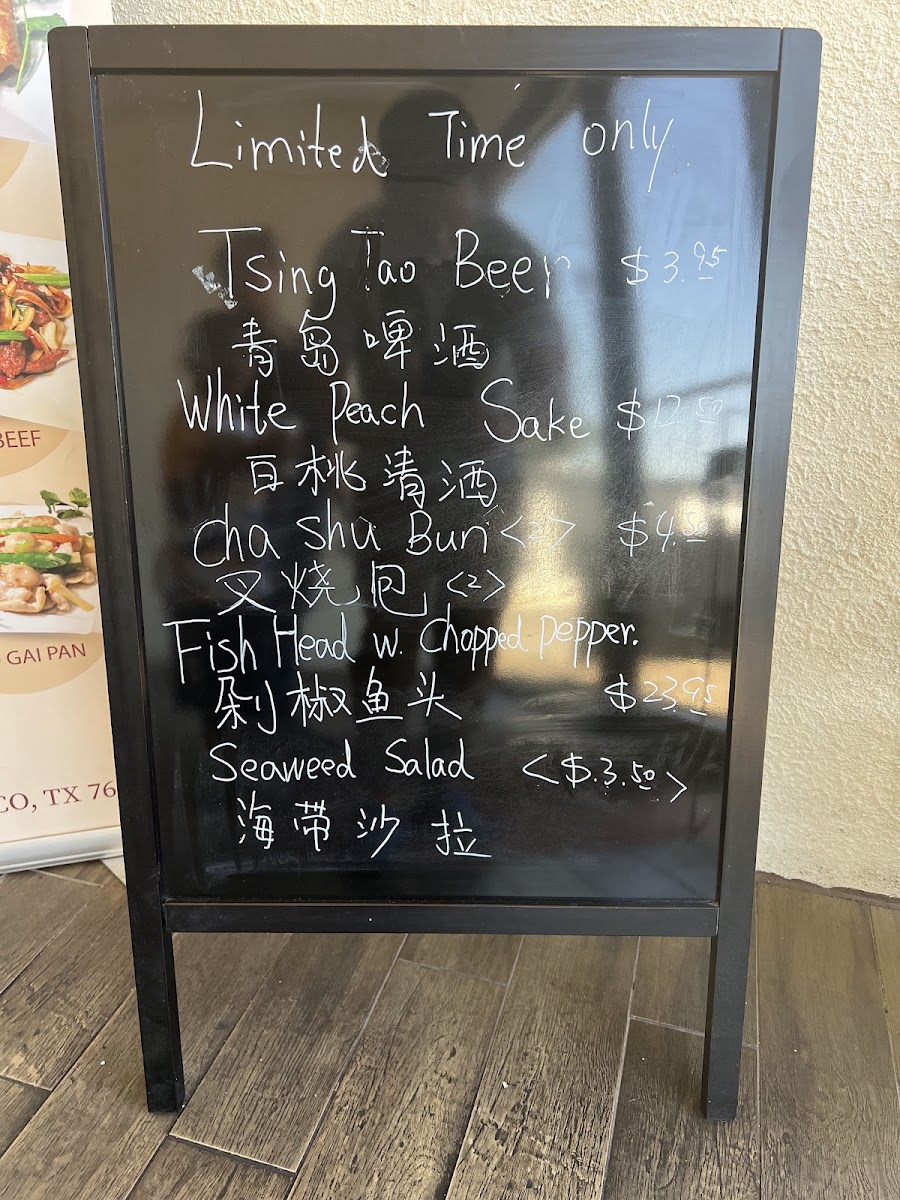 Limited Time only.
Tsing Tao Beer $3.95
青岛啤酒
White Peach Sake $12.50
白桃清酒
Cha Shu Bun <2> $4.50
叉烧包 <2>
Fish Head w. Chopped pepper.
剁椒鱼头 $23.95
Seaweed Salad <$.3.50>
海带沙拉
BEEF
GAI PAN
CO, TX 76